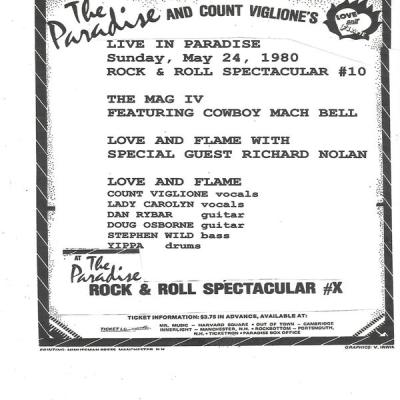 The Paradise AND COUNT VIGLIONE'S
LOVE
LIVE IN PARADISE
Sunday, May 24, 1980
ROCK & ROLL SPECTACULAR #10
THE MAG IV
FEATURING COWBOY MACH BELL
LOVE AND FLAME WITH
SPECIAL GUEST RICHARD NOLAN
LOVE AND FLAME
COUNT VIGLIONE vocals
LADY CAROLYN vocals
DAN RYBAR guitar
DOUG OSBORNE guitar
STEPHEN WILD bass
YIPPA drums
AT The Paradise
ROCK & ROLL SPECTACULAR #X
TICKET INFORMATION: $3.75 IN ADVANCE, AVAILABLE AT:
MR. MUSIC – HARVARD SQUARE • OUT OF TOWN – CAMBRIDGE
INNERLIGHT – MANCHESTER, N.H. • ROCKBOTTOM – PORTSMOUTH,
N.H. • TICKETRON • PARADISE BOX OFFICE
PRINTING: MINUTEMAN PRESS MANCHESTER, N.H.
GRAPHICS: V. IRWIN